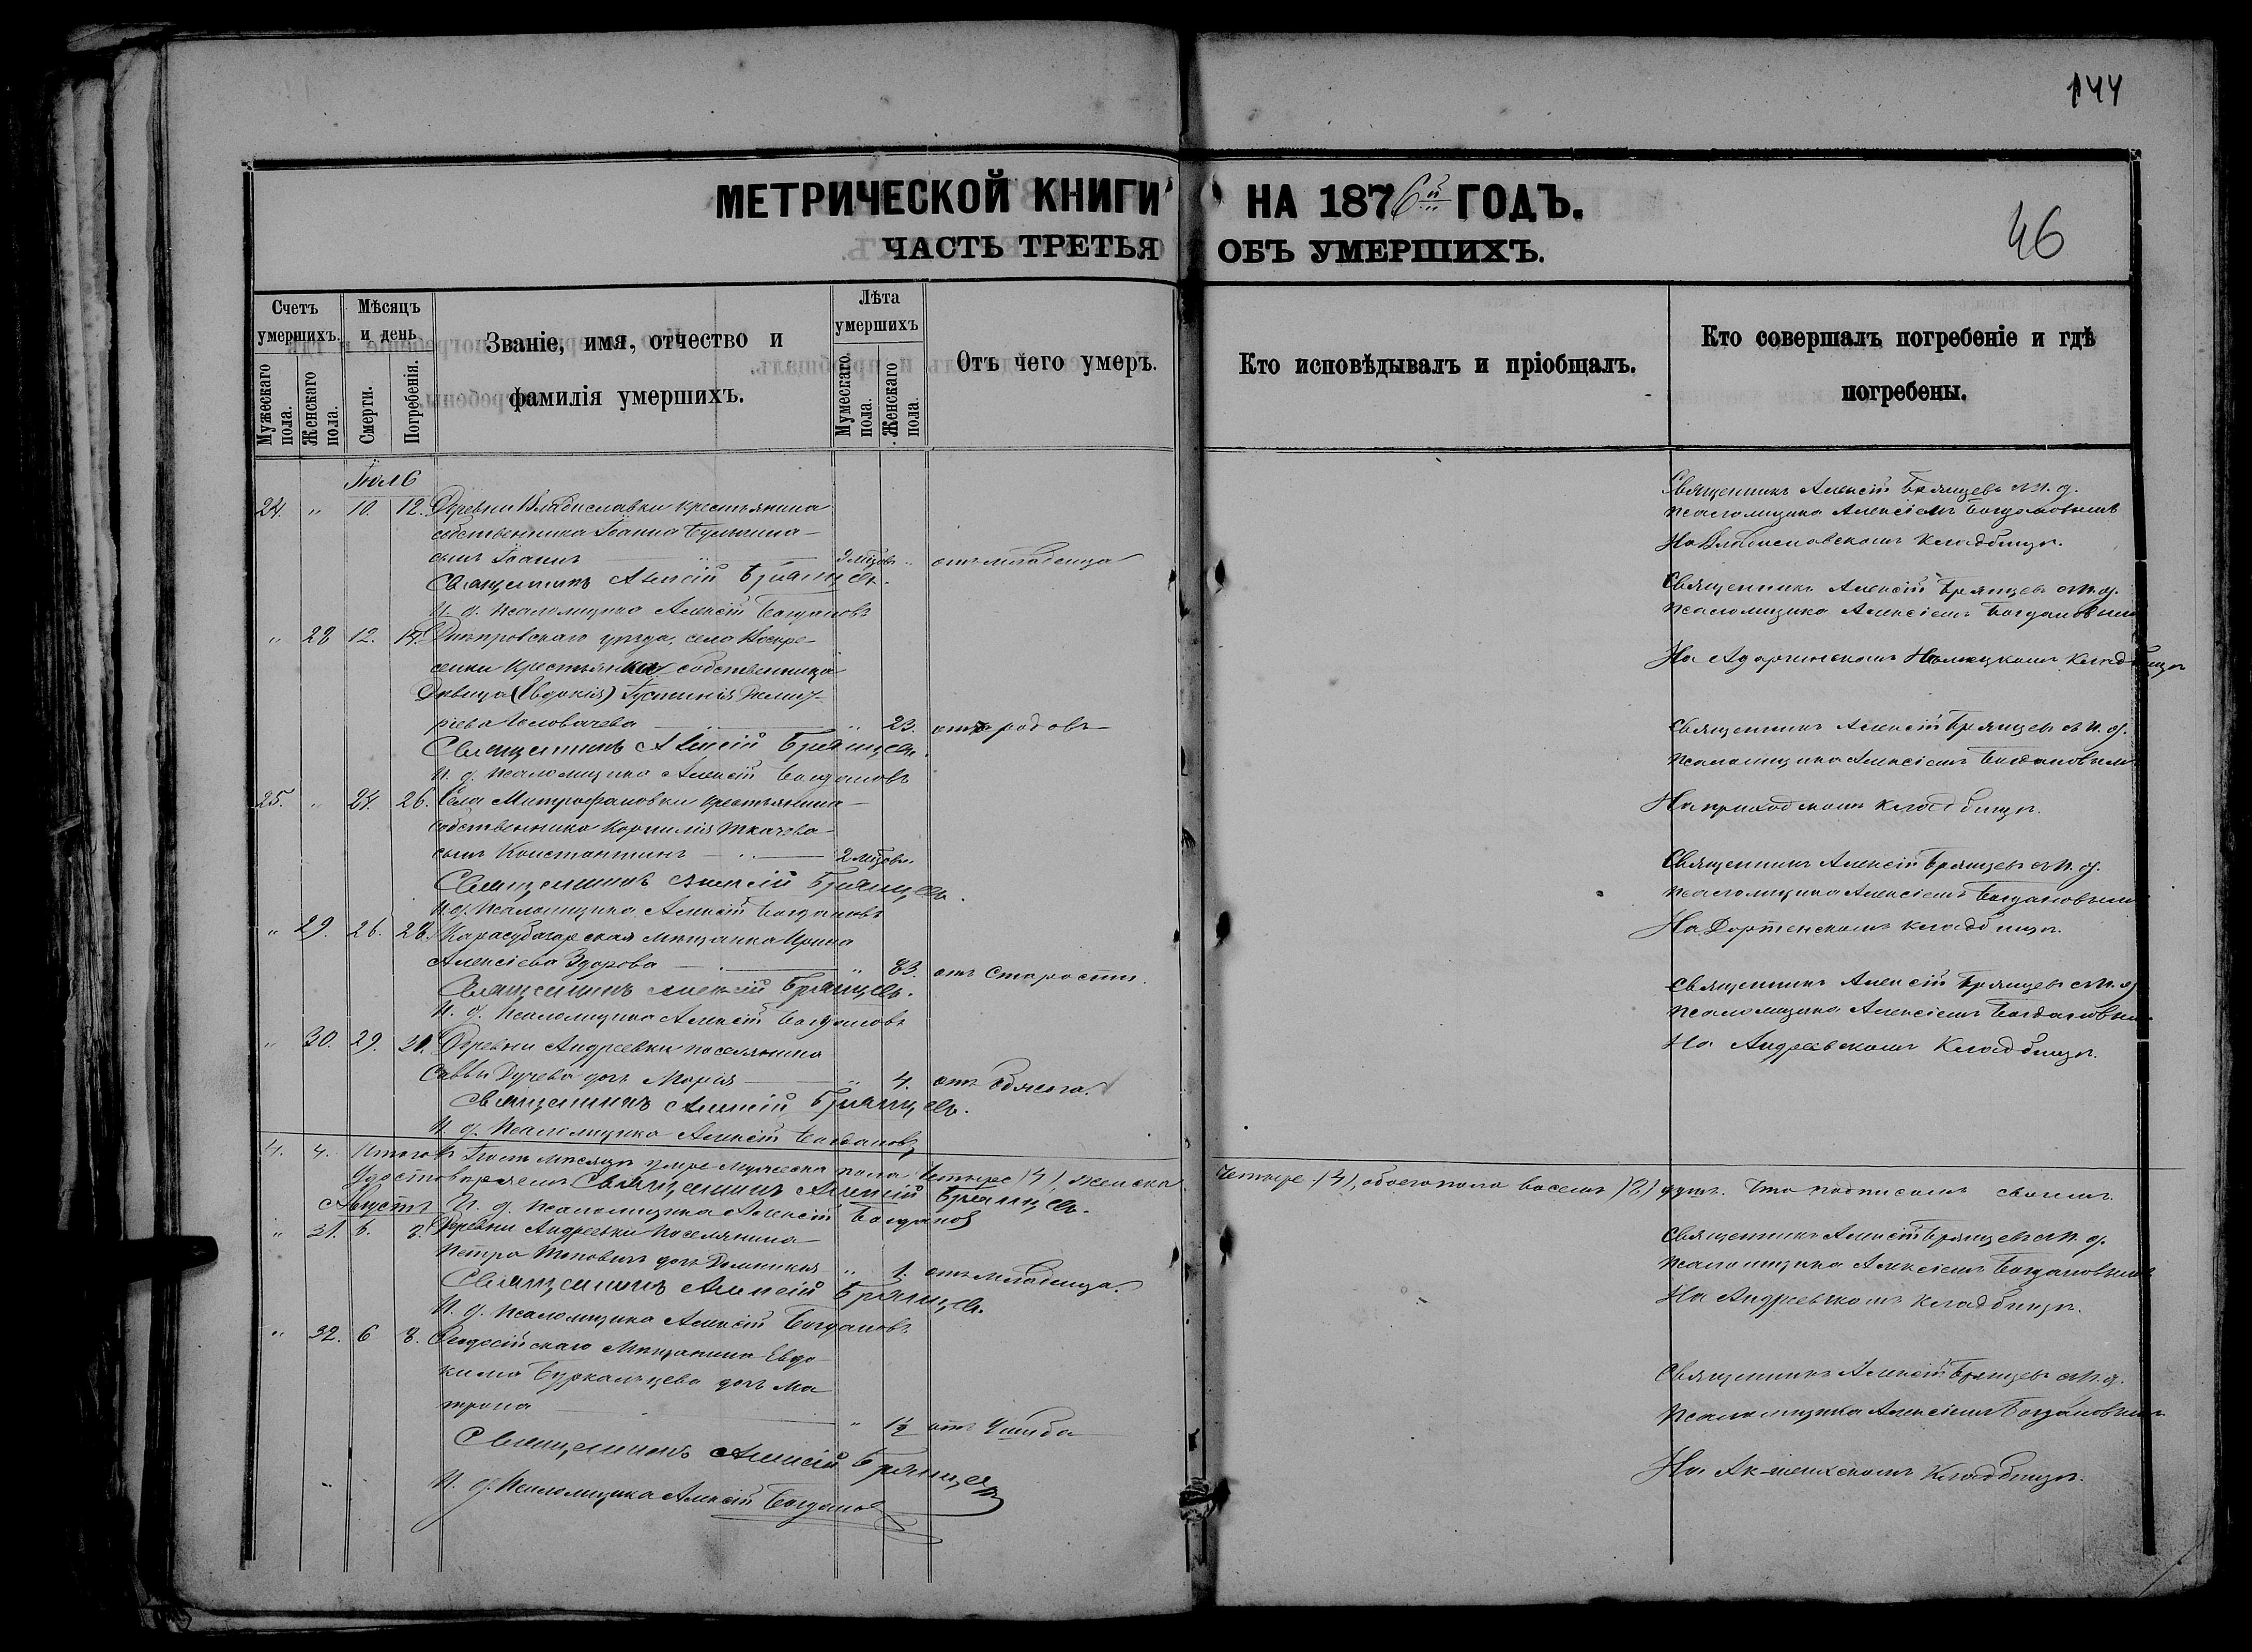 144
МЕТРИЧЕСКОЙ КНИГИ НА 1876й ГОДЪ.
46
ЧАСТЬ ТРЕТЬЯ ОБЪ УМЕРШИХЪ.
Счетъ умершихъ.
Мужескаго пола.
Женскаго пола.
Мѣсяцъ и день
Смерти.
Погребенія.
Званіе, имя, отчество и
фамилія умершихъ.
Лѣта умершихъ
Мужескаго пола.
Женскаго пола.
Отъ чего умеръ.
Кто исповѣдывалъ и пріобщалъ.
Кто совершалъ погребеніе и гдѣ
погребены.
Іюль
24. " 10. 12. Деревни Владиславки крестьянина
собственника Іоанна
сынъ Іоаннъ 2 мѣсяц. " отъ младенца
Священникъ Алексій Брянцевъ.
И. д. псаломщика Алексій Богдановъ
Священникъ Алексій Брянцевъ съ И. д.
псаломщика Алексіемъ Богдановымъ
На Владиславскомъ кладбищѣ.
" 28 12. 14. Днепровскаго уезда, села Воскре-
сенки крестьянка собственница
девица (Евдокія) Іустинія Димит-
ріева " 23. отъ родовъ
Священникъ Алексій Брянцевъ.
И. д. псаломщика Алексій Богдановъ
Священникъ Алексій Брянцевъ съ И. д.
псаломщика Алексіемъ Богдановымъ
На Немецкомъ кладбищѣ
25. " 24. 26. Села Митрофановки крестьянина
собственника Корнилія Ткачева
сынъ Константинъ 2 мѣсяц.
Священникъ Алексій Брянцевъ.
И. д. псаломщика Алексій Богдановъ
Священникъ Алексій Брянцевъ съ И. д.
псаломщика Алексіемъ Богдановымъ
На приходскомъ кладбищѣ.
" 29. 26. 28. Карасубазарская мещанка Ирина
Алексіева Здорова " 83. отъ старости.
Священникъ Алексій Брянцевъ.
И. д. псаломщика Алексій Богдановъ
Священникъ Алексій Брянцевъ съ И. д.
псаломщика Алексіемъ Богдановымъ
На Дортенскомъ кладбищѣ.
" 30. 29. 31. Деревни Андреевки поселянина
Саввы Дучева дочь Марія " 4. отъ
Священникъ Алексій Брянцевъ.
И. д. псаломщика Алексій Богдановъ
Священникъ Алексій Брянцевъ съ И. д.
псаломщика Алексіемъ Богдановымъ
На Андреевскомъ кладбищѣ.
4. 4. Итого въ Іюлѣ мѣсяцѣ умре мужеска пола четыре (4), женска четыре (4), обоего пола восемь (8) душъ. Что подписомъ своимъ
удостоверяемъ Священникъ Алексій Брянцевъ.
И. д. псаломщика Алексій Богдановъ
Августъ
" 31. 6. 8. Деревни Андреевки поселянина
Петра дочь Домникія " 1. отъ младенца.
Священникъ Алексій Брянцевъ.
И. д. псаломщика Алексій Богдановъ
Священникъ Алексій Брянцевъ съ И. д.
псаломщика Алексіемъ Богдановымъ
На Андреевскомъ кладбищѣ.
" 32. 6 8. Феодосійскаго мещанина Евдо-
кима Буркальцева дочь Ма
трона " 1½ отъ ушиба
Священникъ Алексій Брянцевъ
И. д. псаломщика Алексій Богдановъ
Священникъ Алексій Брянцевъ съ И. д.
псаломщика Алексіемъ Богдановымъ
На кладбищѣ.